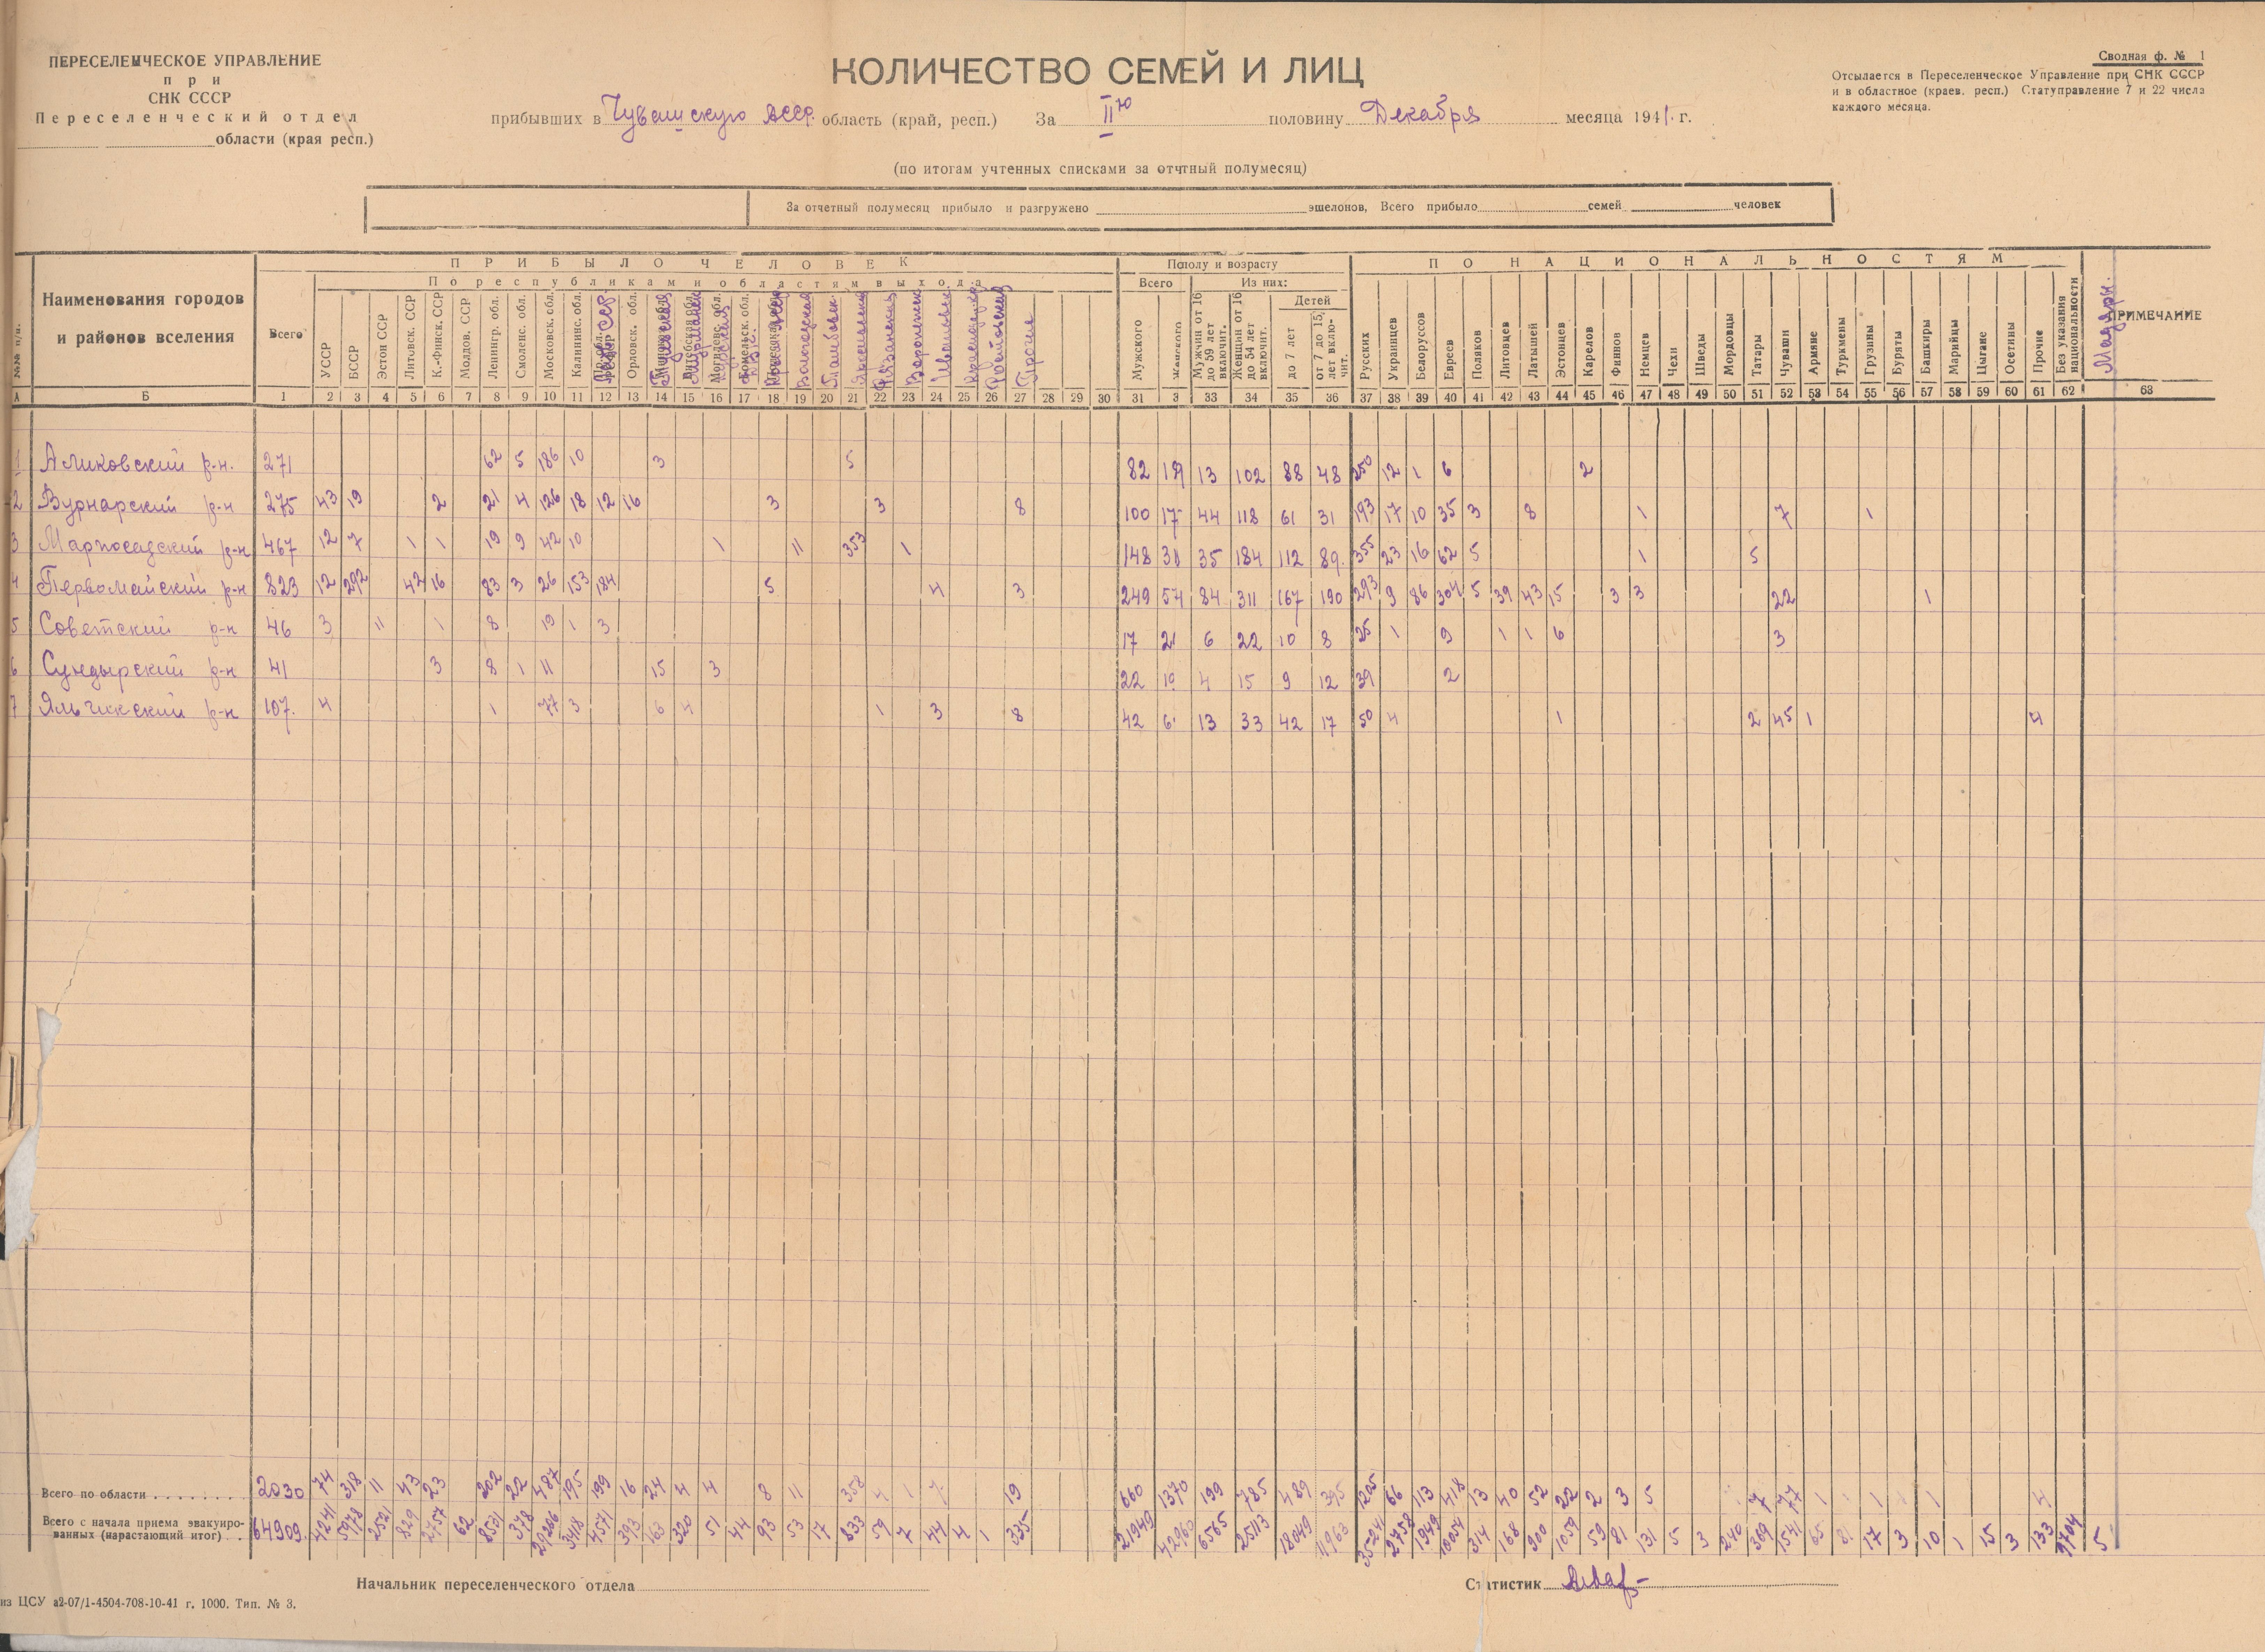 ПЕРЕСЕЛЕНЧЕСКОЕ УПРАВЛЕНИЕ
при
СНК СССР
Переселенческий отдел
области (края респ.)
КОЛИЧЕСТВО СЕМЕЙ И ЛИЦ
прибывших в Чувашскую АССР. область (край, респ.) За IIю половину Декабря месяца 1941. г.
(по итогам учтенных списками за отчтный полумесяц)
Сводная ф. № 1
Отсылается в Переселенческое Управление при СНК СССР
и в областное (краев. респ.) Статуправление 7 и 22 числа
каждого месяца.
За отчетный полумесяц прибыло и разгружено эшелонов, Всего прибыло семей человек
№№ п/п.
Наименования городов
и районов вселения
ПРИБЫЛО ЧЕЛОВЕК
По республикам и областям выхода
Всего
УССР
БССР
Эстон ССР
Литовск. ССР
К.-Финск. ССР
Молдов. ССР
Ленингр. обл.
Смоленс. обл.
Московск. обл.
Калининс. обл.
Орловск. обл.
Мурманск
Вологодская
Тамбовск.
Рязанская
Воронежск
Ростовская
Прочие
Пополу и возрасту
Всего
Из них:
Мужского
Женского
Мужчин от 16 до 59 лет включит.
Женщин от 16 до 54 лет включит.
Детей
до 7 лет
от 7 до 15 лет вклю- чит.
ПО НАЦИОНАЛЬНОСТЯМ
Русских
Украинцев
Белоруссов
Евреев
Поляков
Литовцев
Латышей
Эстонцев
Карелов
Финнов
Немцев
Чехи
Шведы
Мордовцы
Татары
Чуваши
Армяне
Туркмены
Грузины
Буряты
Башкиры
Марийцы
Цыгане
Осетины
Прочие
Без указания национальности
Мадьяры.
ПРИМЕЧАНИЕ
А Б 1 2 3 4 5 6 7 8 9 10 11 12 13 14 15 16 17 18 19 20 21 22 23 24 25 26 27 28 29 30 31 3 33 34 35 36 37 38 39 40 41 42 43 44 45 46 47 48 49 50 51 52 53 54 55 56 57 58 59 60 61 62 63
1 Аликовский р-н. 271 62 5 186 10 3 5 82 189 13 102 88 48 250 12 1 6 2
2 Вурнарский р-н 275 43 19 2 21 4 126 18 12 16 3 3 8 100 17 44 118 61 31 193 17 10 35 3 8 1 7 1
3 Марпосадский р-н 467 12 7 1 1 19 9 42 10 1 11 353 1 148 31 35 184 112 89. 355 23 16 62 5 1 5
4 Первомайский р-н 823 12 292 42 16 83 3 26 153 184 5 4 3 249 57 84 311 167 190 293 9 86 304 5 39 43 15 3 3 22 1
5 Советский р-н 46 3 11 1 8 19 1 3 17 2 6 22 10 8 25 1 9 1 1 6 3
6 Сундырский р-н 41 3 8 1 11 15 3 22 19 4 15 9 12 39 2
7 Яльчикский р-н 107. 4 1 77 3 6 4 1 3 8 42 6 13 33 42 17 50 4 1 2 45 1 4
Всего по области 2030 74 318 11 43 23 202 22 487 195 199 16 24 4 4 8 11 358 4 1 7 19 660 1370 199 785 489 395 1205 66 113 418 13 40 52 22 2 3 5 7 77 1 1 1 4
Всего с начала приема эвакуиро-
ванных (нарастающий итог) 64909. 4241 5978 2521 829 2757 62 8531 378 29206 3418 4571 393 163 320 51 44 93 53 17 833 59 7 44 4 1 335 21949 42960 6565 25113 18049 11963 35241 2758 1949 10054 314 168 900 1059 59 81 131 5 3 240 369 1541 65 81 17 3 10 1 15 3 133 9704 5
Начальник переселенческого отдела
Статистик
из ЦСУ а2-07/1-4504-708-10-41 г. 1000. Тип. № 3.